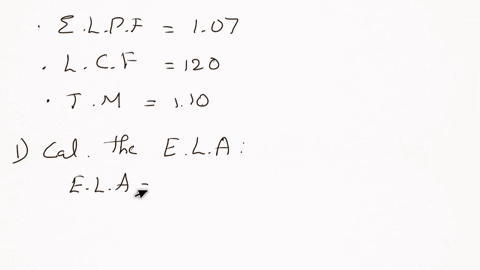 · E.L.P.F = 1.07
· L.C.F = 120
· T.M = 1.10
1) Cal. the E.L.A :
E.L.A =